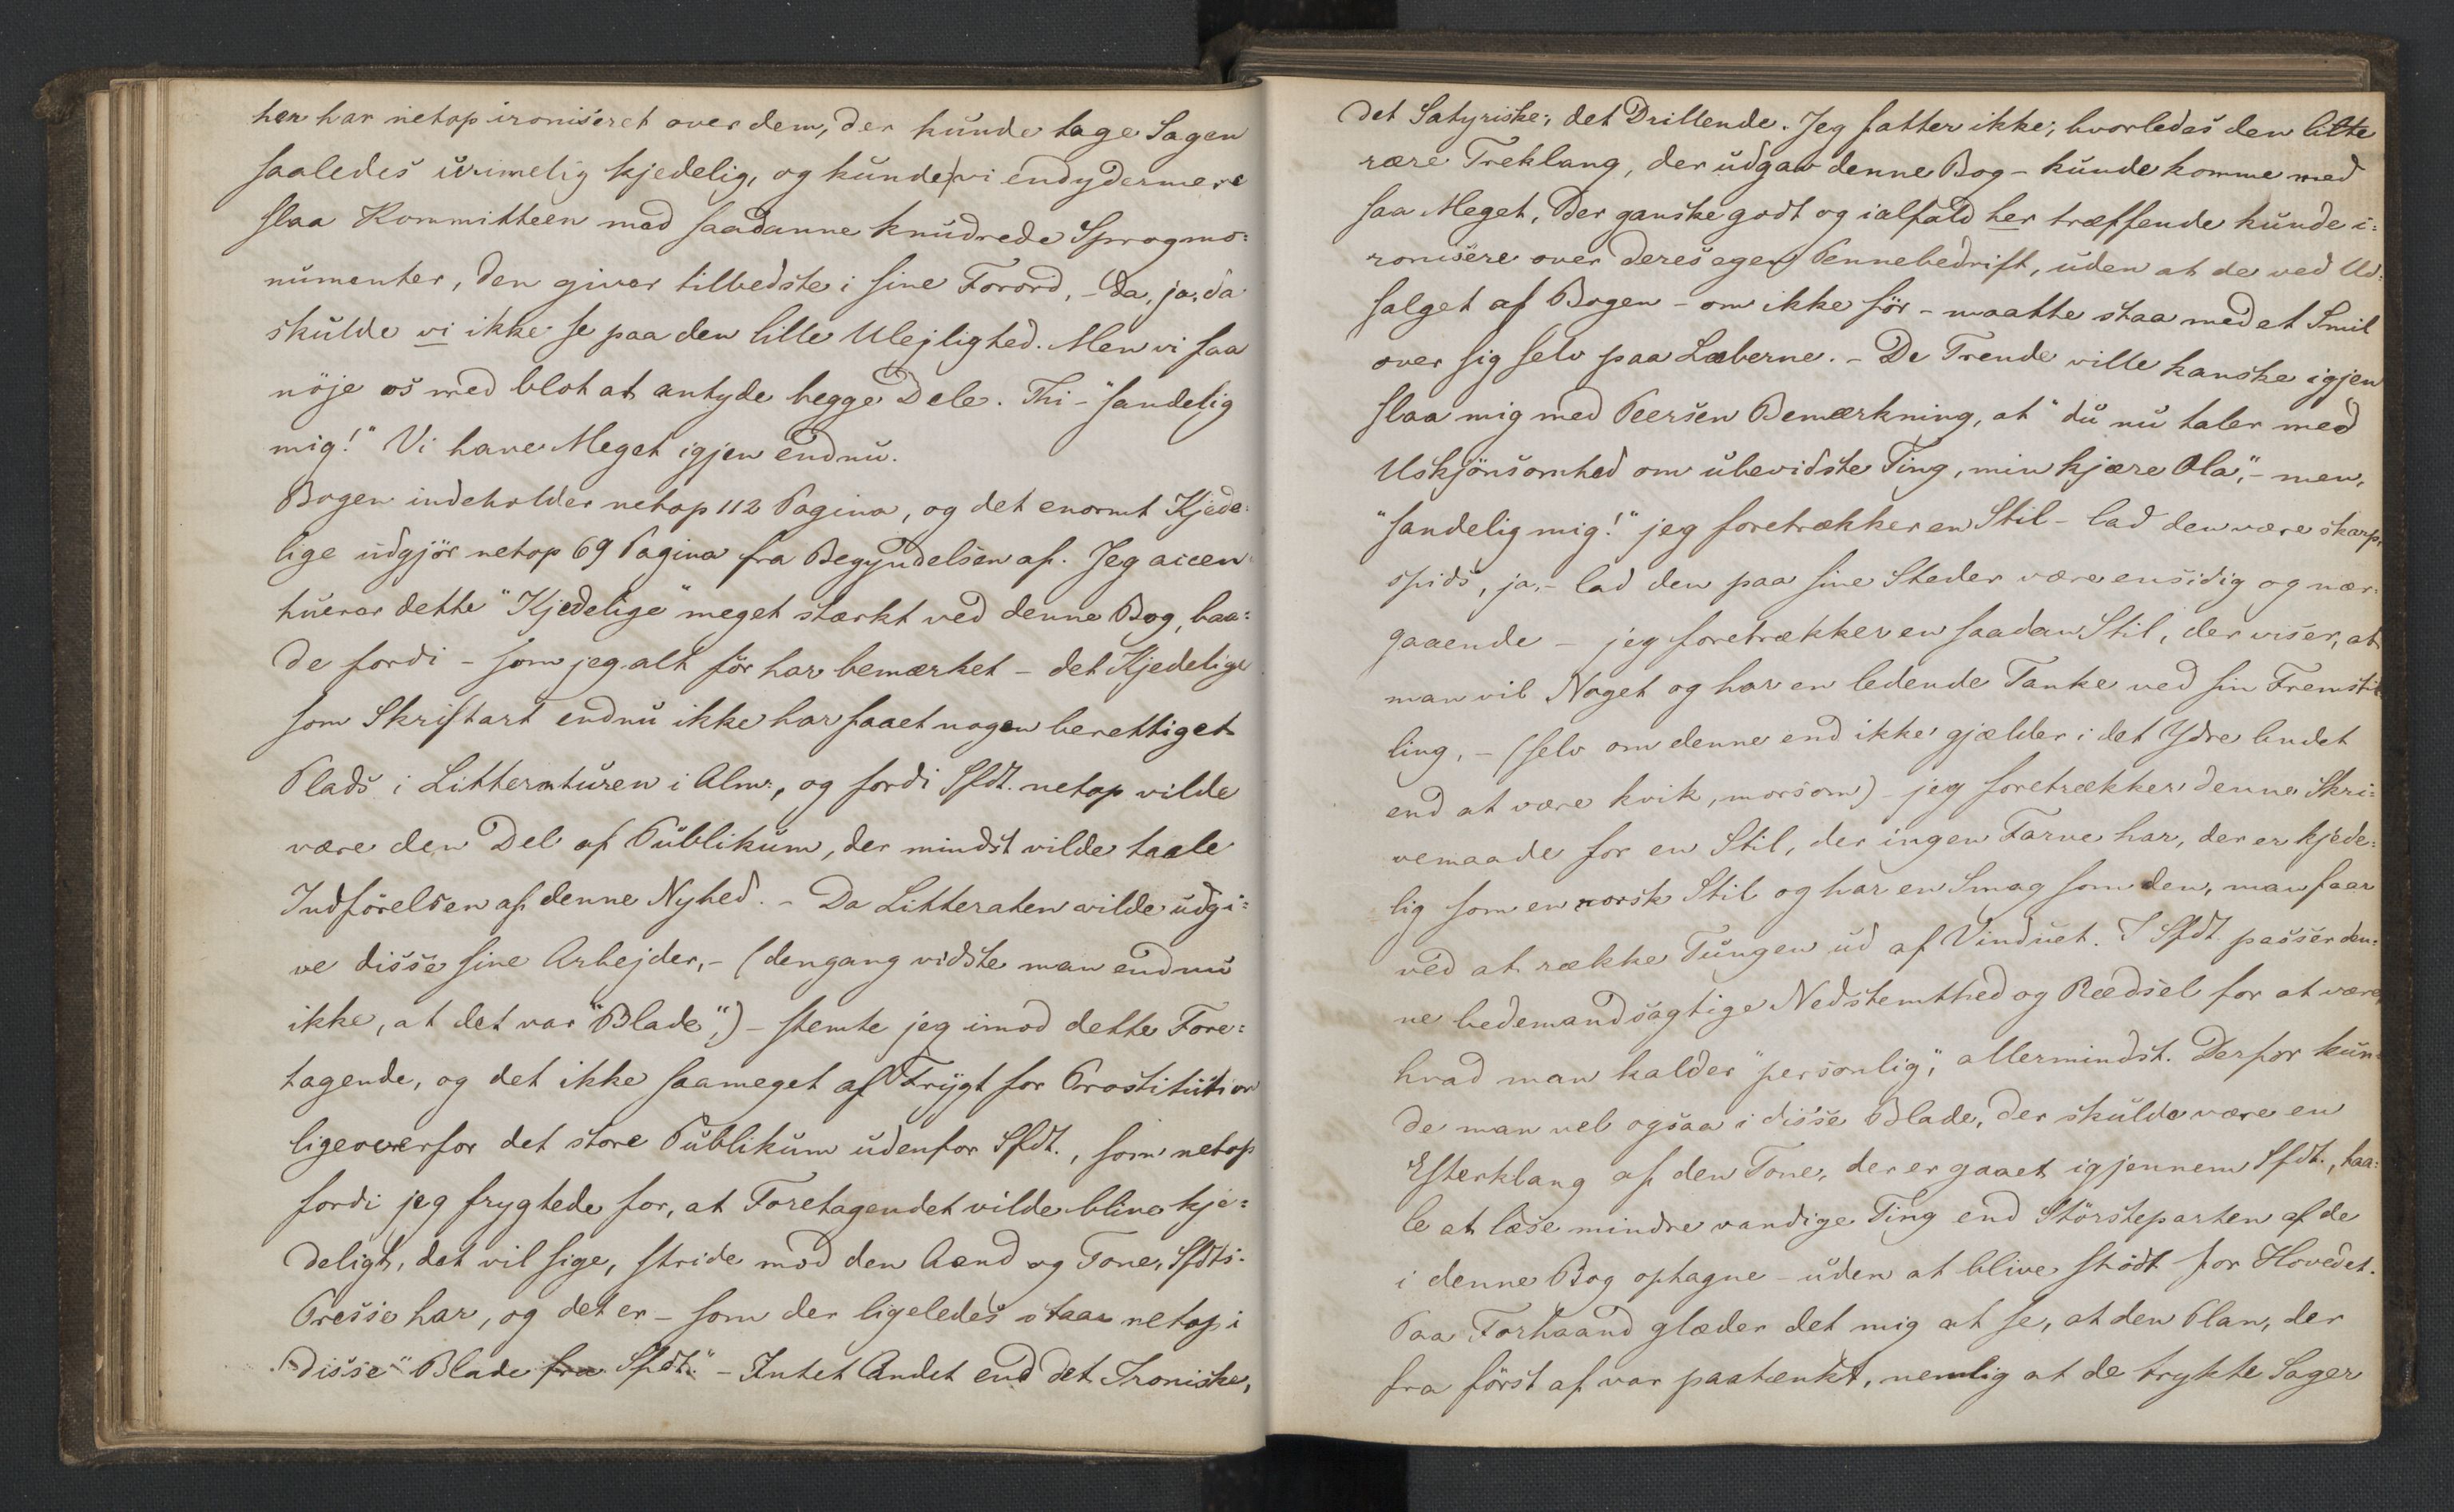 her har netop ironiseret over dem, der kunde tage Sagen
saaledes urimelig kjedelig, og kunde vi endydermere
slaa Kommitteen med saadanne knudrede Sprogmo=
numenter, den giver tilbedste i sine Forord, - da, ja, da
skulde vi ikke se paa den lille Ulejlighed. Men vi faa
nöje os med blot at antyde begge Dele. Thi - "sandelig
mig!" Vi have Meget igjen endnu.
Bogen indeholder netop 112 Pagina, og det enormt Kjede=
lige udgjör netop 69 Pagina fra Begyndelsen af. Jeg accen
tuerer dette "Kjedelige" meget stærkt ved denne Bog, baa=
de fordi - som jeg alt för har bemærket - det Kjedelige
som Skriftart endnu ikke har faaet nogen berettiget
Plads i Litteraturen i Alm:, og fordi Sfdt. netop vilde
være den Del af Publikum, der mindst vilde taale
Indförelsen af denne Nyhed. - Da Litteraten vilde udgi=
ve disse sine Arbejder, - (dengang vidste man endnu
ikke, at det var "Blade",) - stemte jeg imod dette Fore=
tagende, og det ikke saameget af Frygt for Prostitution
ligeoverfor det store Publikum udenfor Sfdt., som netop
fordi jeg frygtede for, at Foretagendet vilde blive kje=
deligt, det vil sige, stride mod den Aand og Tone, Sfdts.
Presse har, og det er - som der ligeledes staar netop i
disse "Blade fra Sfdt." - Intet Andet end det Ironiske,
det Satyriske, det Drillende. Jeg fatter ikke, hvorledes den litte
rære Treklang, der udgav denne Bog - kunde komme med
saa Meget, der ganske godt og ialfald her træffende kunde i=
ronisere over deres egen Pennebedrift, uden at de ved Ud=
salget af Bogen - om ikke för - maatte staa med et Smil
over sig selv paa Læberne. - De Trende ville kanske igjen
slaa mig med Peersen Bemærkning, at "du nu taler med
Uskjönsomhed om ubevidste Ting, min kjære Ola," - men,
"sandelig mig!" jeg foretrækker en Stil - lad den være skarp,
spids, ja, - lad den paa sine Steder være ensidig og nær=
gaaende - jeg foretrækker en saadan Stil, der viser, at
man vil Noget og har en ledende Tanke ved sin Fremstil
ling, - (selv om denne end ikke gjælder i det Ydre Andet
end at være kvik, morsom) - jeg foretrækker denne Skri=
vemaade for en Stil, der ingen Farve har, der er kjede=
lig som en norsk Stil og har en Smag som den, man faar
ved at række Tungen ud af Vinduet. I Sfdt. passer den=
ne bedemandsagtige Nedstemthed og Rædsel for at være,
hvad man kalder "personlig", allermindst. Derfor kun=
de man vel ogsaa i disse Blade, der skulde være en
Efterklang af den Tone, der er gaaet igjennem Sfdt., taa=
le at læse mindre vandige Ting end Störsteparten af de
i denne Bog optagne - uden at blive stödt for Hovedet.
Paa Forhaand glæder det mig at se, at den Plan, der
fra först af var paatænkt, nemlig at de trykte Sager